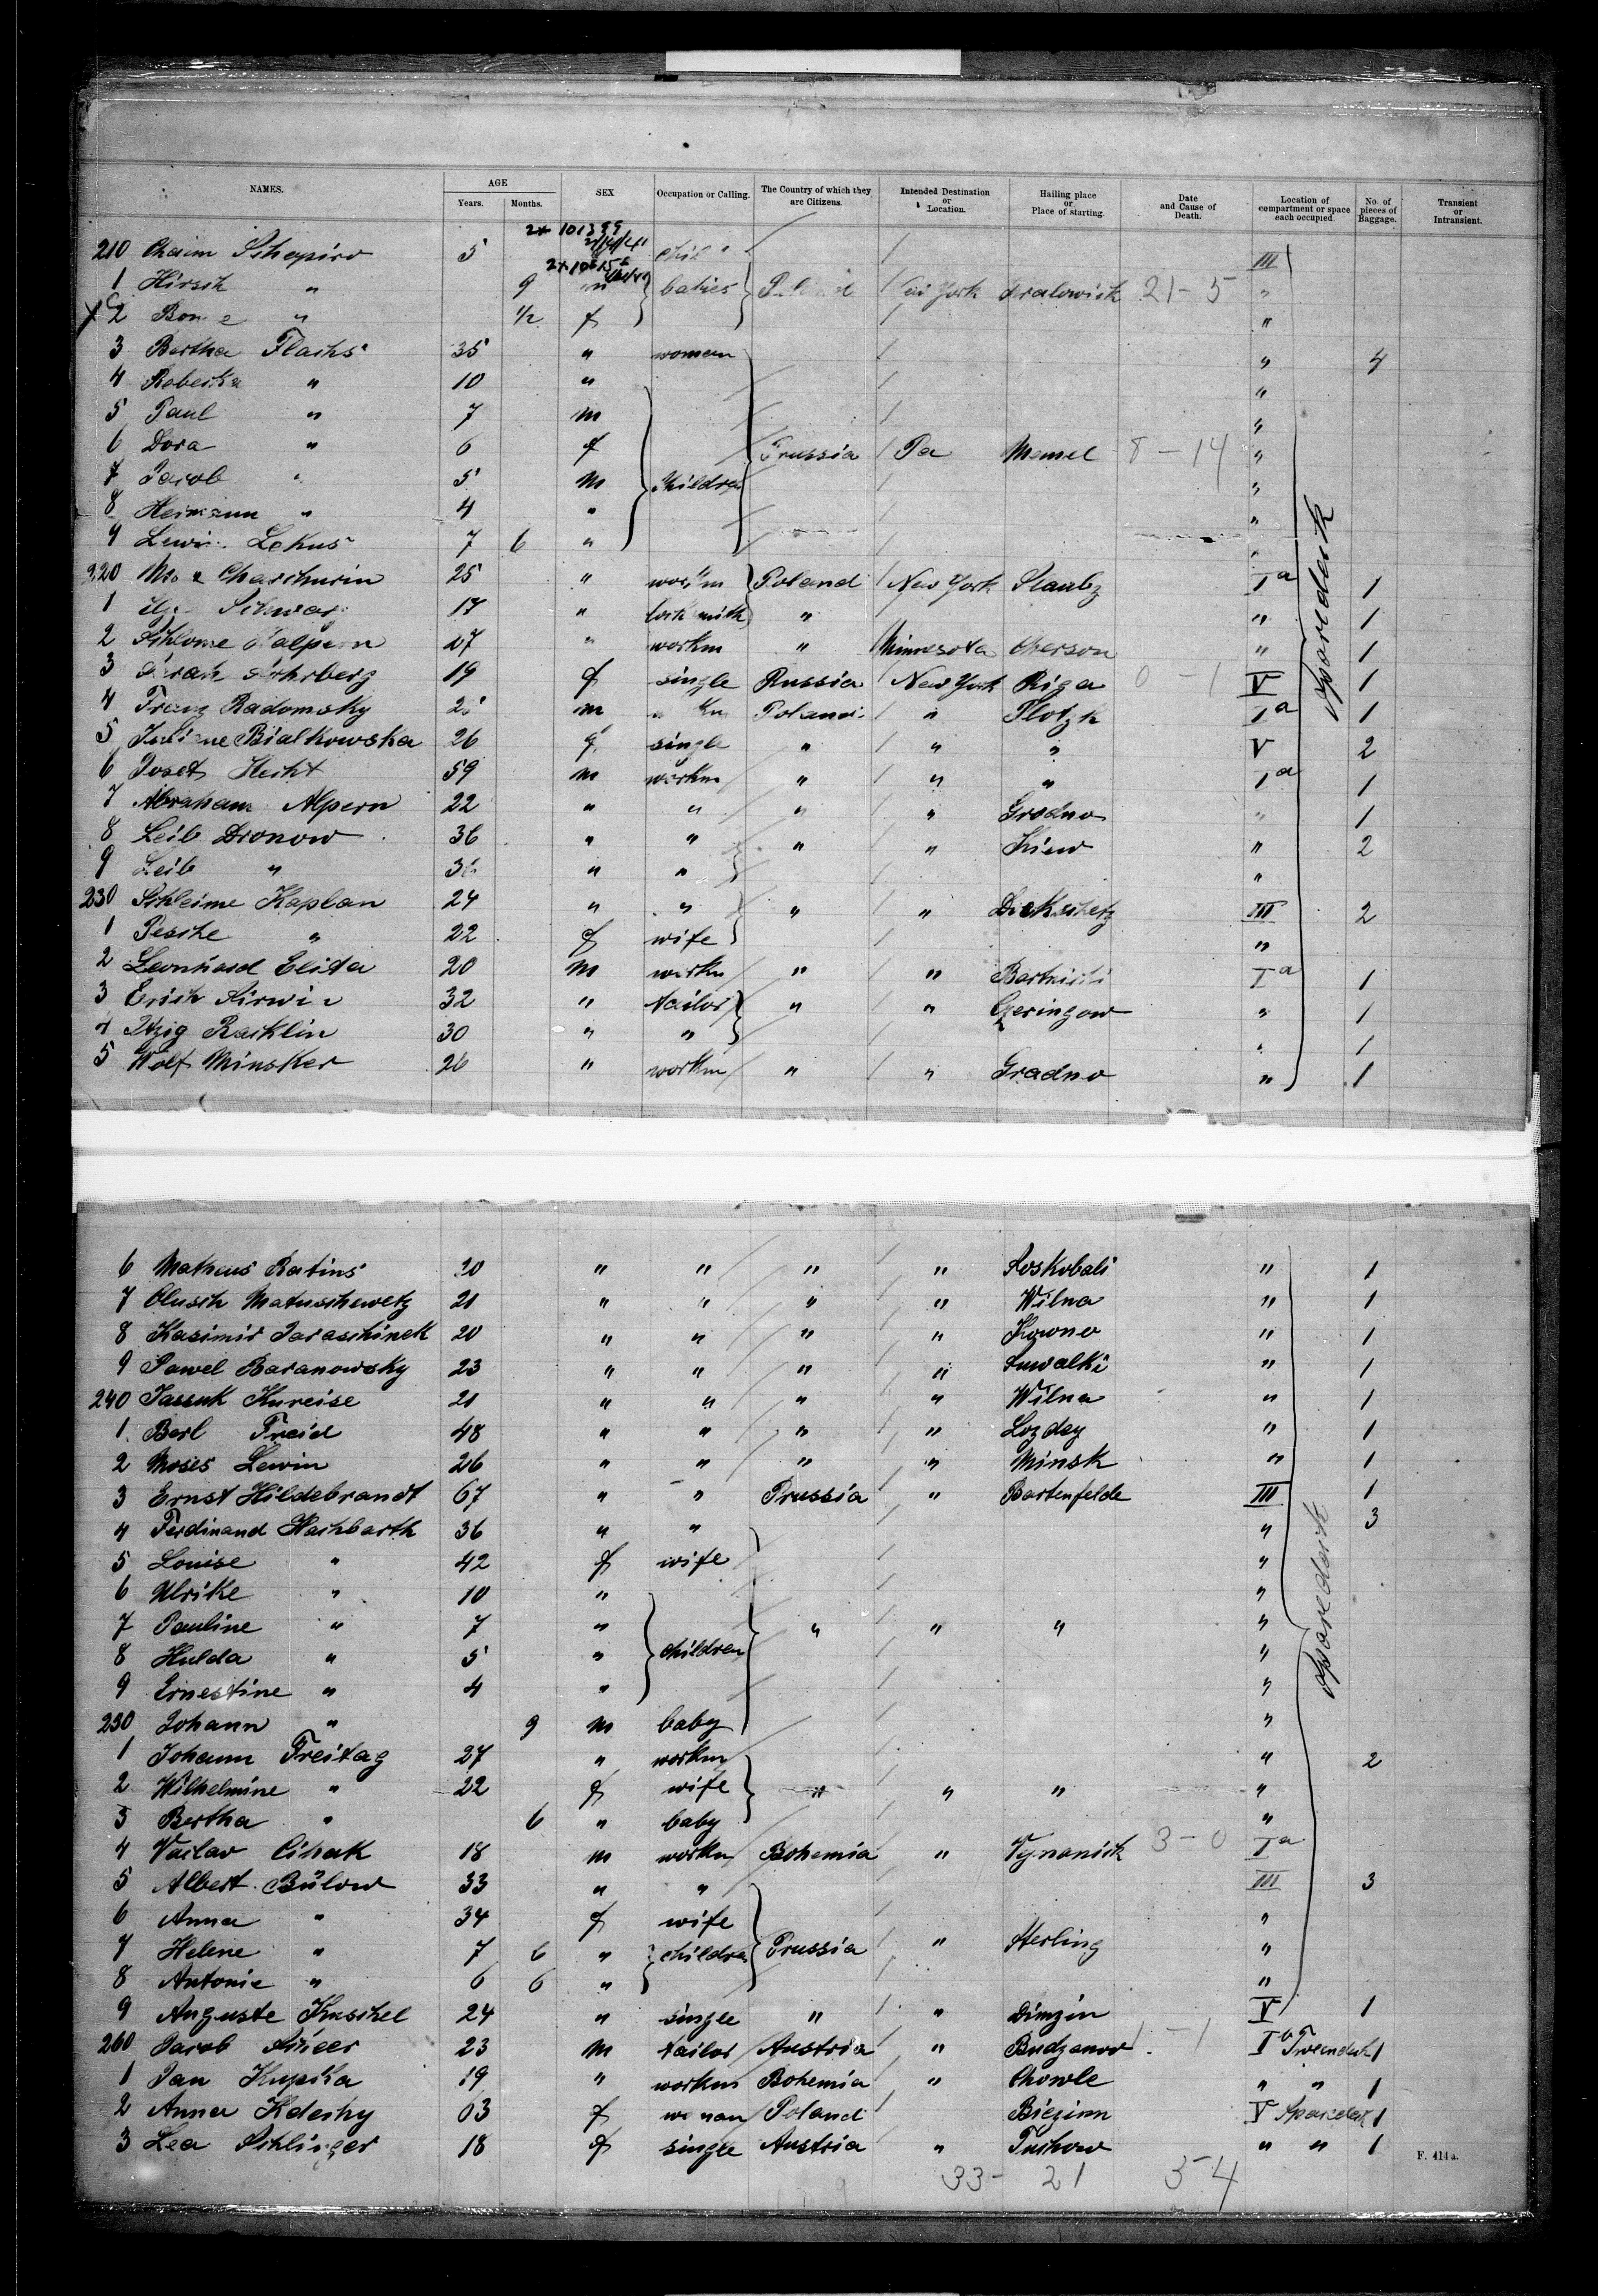 NAMES. AGE SEX Occupation or Calling. The Country of which they are Citizens. Intended Destination or Location. Hailing place or Place of starting. Date and Cause of Death. Location of compartment or space each occupied. No. of pieces of Baggage. Transient or Intransient.
Years. Months.
2x 101399
210 Chaim Schapiro 5 III
1 Hirsch " 9 babies New York 21-5 "
2 " 1/2 f "
3 Bertha Flachs 35 " woman " 4
4 " 10 " "
5 Paul " 7 m "
6 Dora " 6 f Prussia Pa Memel 8-14 "
7 Jacob " 5 m Children "
8 Heimann " 4 " "
9 Lewin Lekus 7 6 " "
220 Chaschurin 25 " workm Poland New York Staubz Ia 1
1 17 " " " 1
2 Schlome Halpern 27 " workm " Minnesota Cherson " 1
3 19 f single Russia New York Riga 0-1 V 1
4 Franz Radomsky m Poland " Plotzk Ia 1
5 Juliane Bialkowska 26 f single " " " V 2
6 Josef Hecht 59 m workm " " " Ia 1
7 Abraham Alpern 22 " " " " Grodno " 1
8 Leib Dronow 36 " " " " Kiew " 2
9 Leib " " " "
230 Schleime Kaplan 24 " " " " Dickschetz III 2
1 Pesche " 22 f wife "
2 Leonhard Elista 20 m workm " " Ia 1
3 32 " tailor " " Czeringow " 1
4 Itzig Raschlin 30 " " " 1
5 Wolf Minsker 26 " workm " " Gradno " 1
Sparedeck
6 Matheus Ratins 20 " " " " Roskobali " 1
7 Olusch Matuschewetz 21 " " " " Wilna " 1
8 Kasimir Jaraschinek 20 " " " " Kowno " 1
9 Pawel Baranowsky 23 " " " " Suwalki " 1
240 Jassuk Kureise 21 " " " " Wilna " 1
1 Berl Freid 48 " " " " Lozdey " 1
2 Moses Lewin 26 " " " " Minsk " 1
3 Ernst Hildebrandt 67 " " Prussia " Bartenfelde III 1
4 Ferdinand Hachbarth 36 " " " 3
5 Louise " 42 f wife "
6 Ulrike " 10 " "
7 Pauline " 7 " " " " "
8 Hulda " 5 " children "
9 Ernestine " 4 " "
250 Johann " 9 m baby "
1 Johann Freitag 27 " workm " 2
2 Wilhelmine " 22 f wife " " " "
3 Bertha " 6 " baby "
4 Vaclav Cihak 18 m workm Bohemia " 3-0 Ia
5 Albert Bülow 33 " " III 3
6 Anna " 34 f wife "
7 Helene " 7 6 " children Prussia " Sterling "
8 Antonie " 6 6 " "
9 Auguste Kuschel 24 " single " " Dimzin V 1
Sparedeck
260 Jacob 23 m tailor Austria " Budzanow 1-1 I Tweendeck 1
1 Jan Kupka 19 " workm Bohemia " Chowle " " 1
2 Anna 63 f woman Poland Biezinn V Sparedeck 1
3 Lea Schlinger 18 f single Austria " Tuchow " " 1
33- 21 54
F. 414 a.